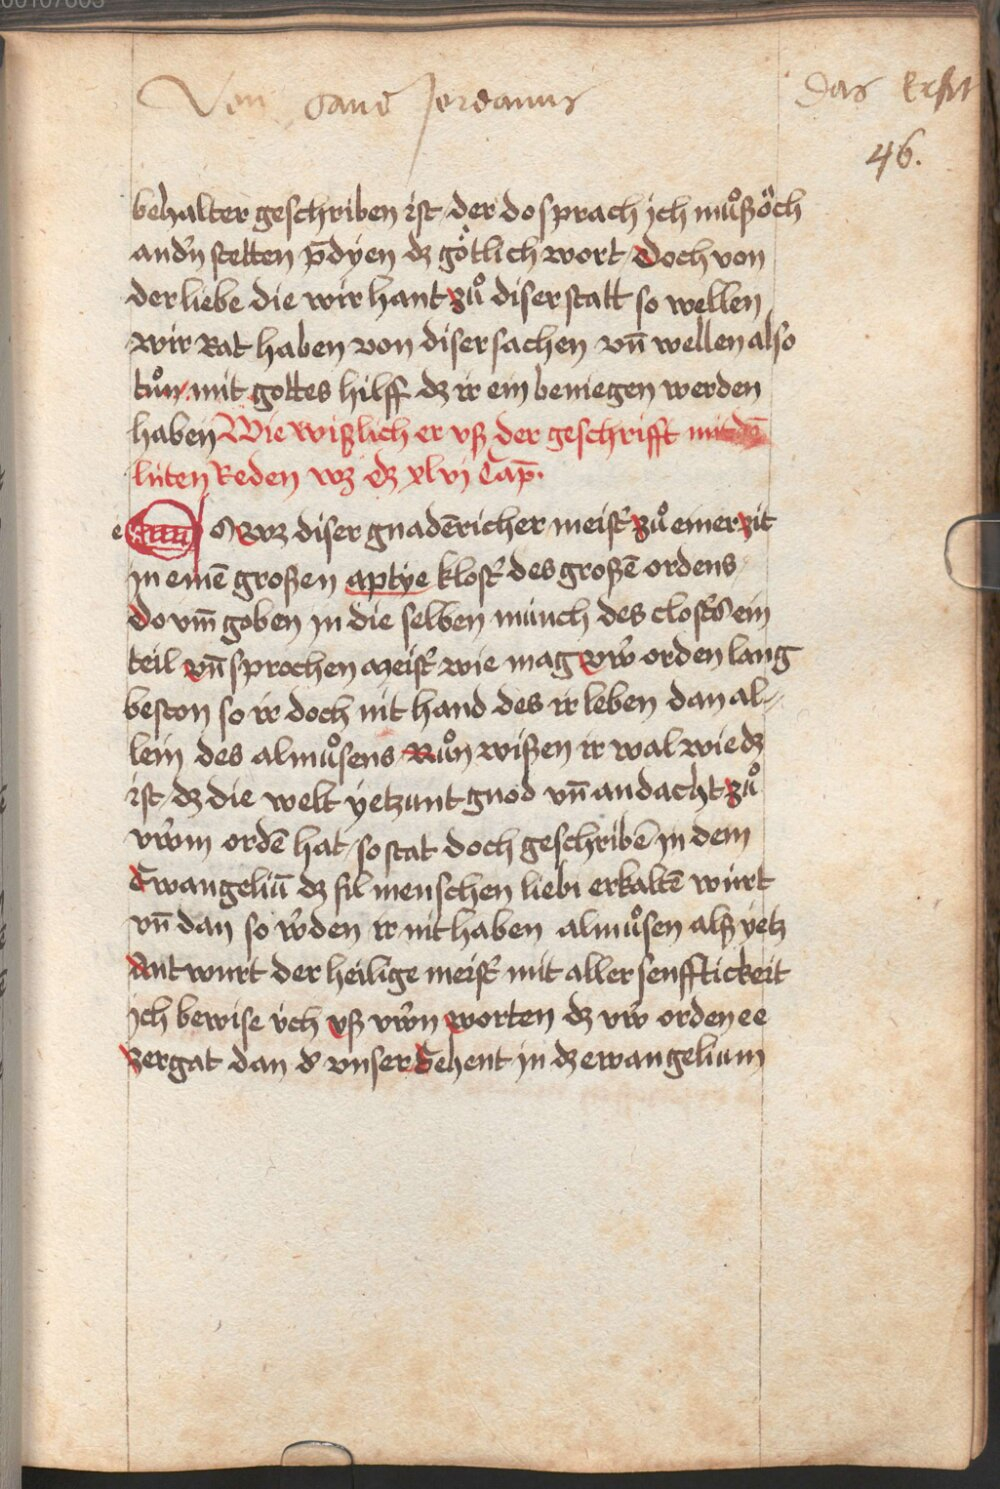 Von sant Jordanus
Das Erst
46.
behalter geschriben ist / der do sprach jch mu̍ͦß öch
andʼn stetten p̄dyen dz götlich wort / Doch von
der liebe die wir hant zuͦ diser statt so wellen
wir Rat haben von diser sachen vn̄ wellen also
tuͦn / mit gottes hilff dz ir ein beniegen werden
haben Wie wißlich er vß der geschrifft mit dē
lüten Reden waz dz xlvj Cap̄.
e
S waz diser gnadēricher meistʼ zuͦ einer zit
jn einē großen aptye klostʼ des großē ordens
do vm̄ goben jn die selben münch des clostʼs ein
teil vn̄ sprochen Meistʼ wie mag vwʼ orden lang
beston so ir doch nit hand des ir leben dan al⸗
lein des almuͦsens Nuͦn wißen ir wal wie dz
ist / dz die welt yetzunt gnod vn̄ andacht zuͦ
vwʼm ordē hat / so stat doch geschribē jn dem
Ewangeliū dz fil menschen liebi erkaltē würt
vn̄ dan so wʼden ir nit haben almuͦsen alß yetz
Antwurt der heilige meistʼ mit aller senfftickeit
jch bewise v́ch vß vwʼn worten dz vwʼ orden ee
zergat dan dʼ vnser Sehent jn dz ewangelium